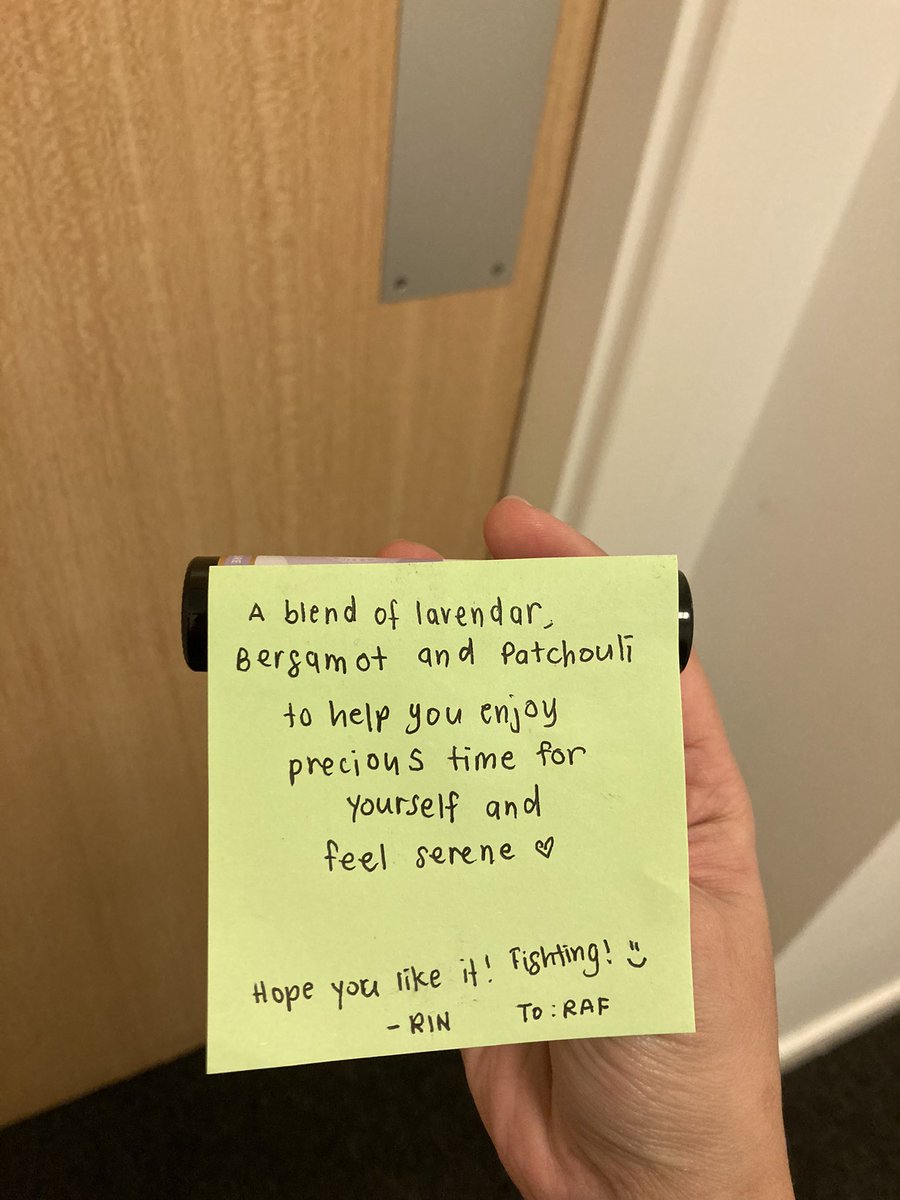 A blend of lavendar,
Bergamot and Patchouli
to help you enjoy
precious time for
yourself and
feel serene ♡
Hope you like it! Fighting! Ü
- RIN To: RAF